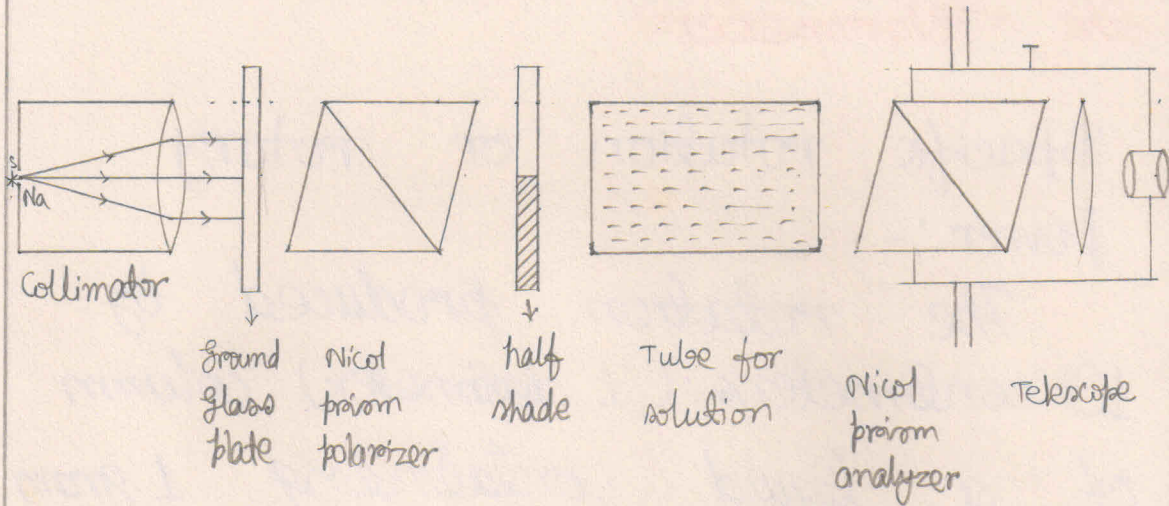 S
Na
T
Collimator
Ground
glass
plate
Nicol
prism
polarizer
half
shade
Tube for
solution
Nicol
prism
analyzer
Telescope